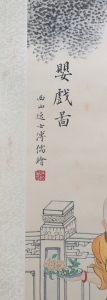 嬰戲圖
西山逸士溥儒繪